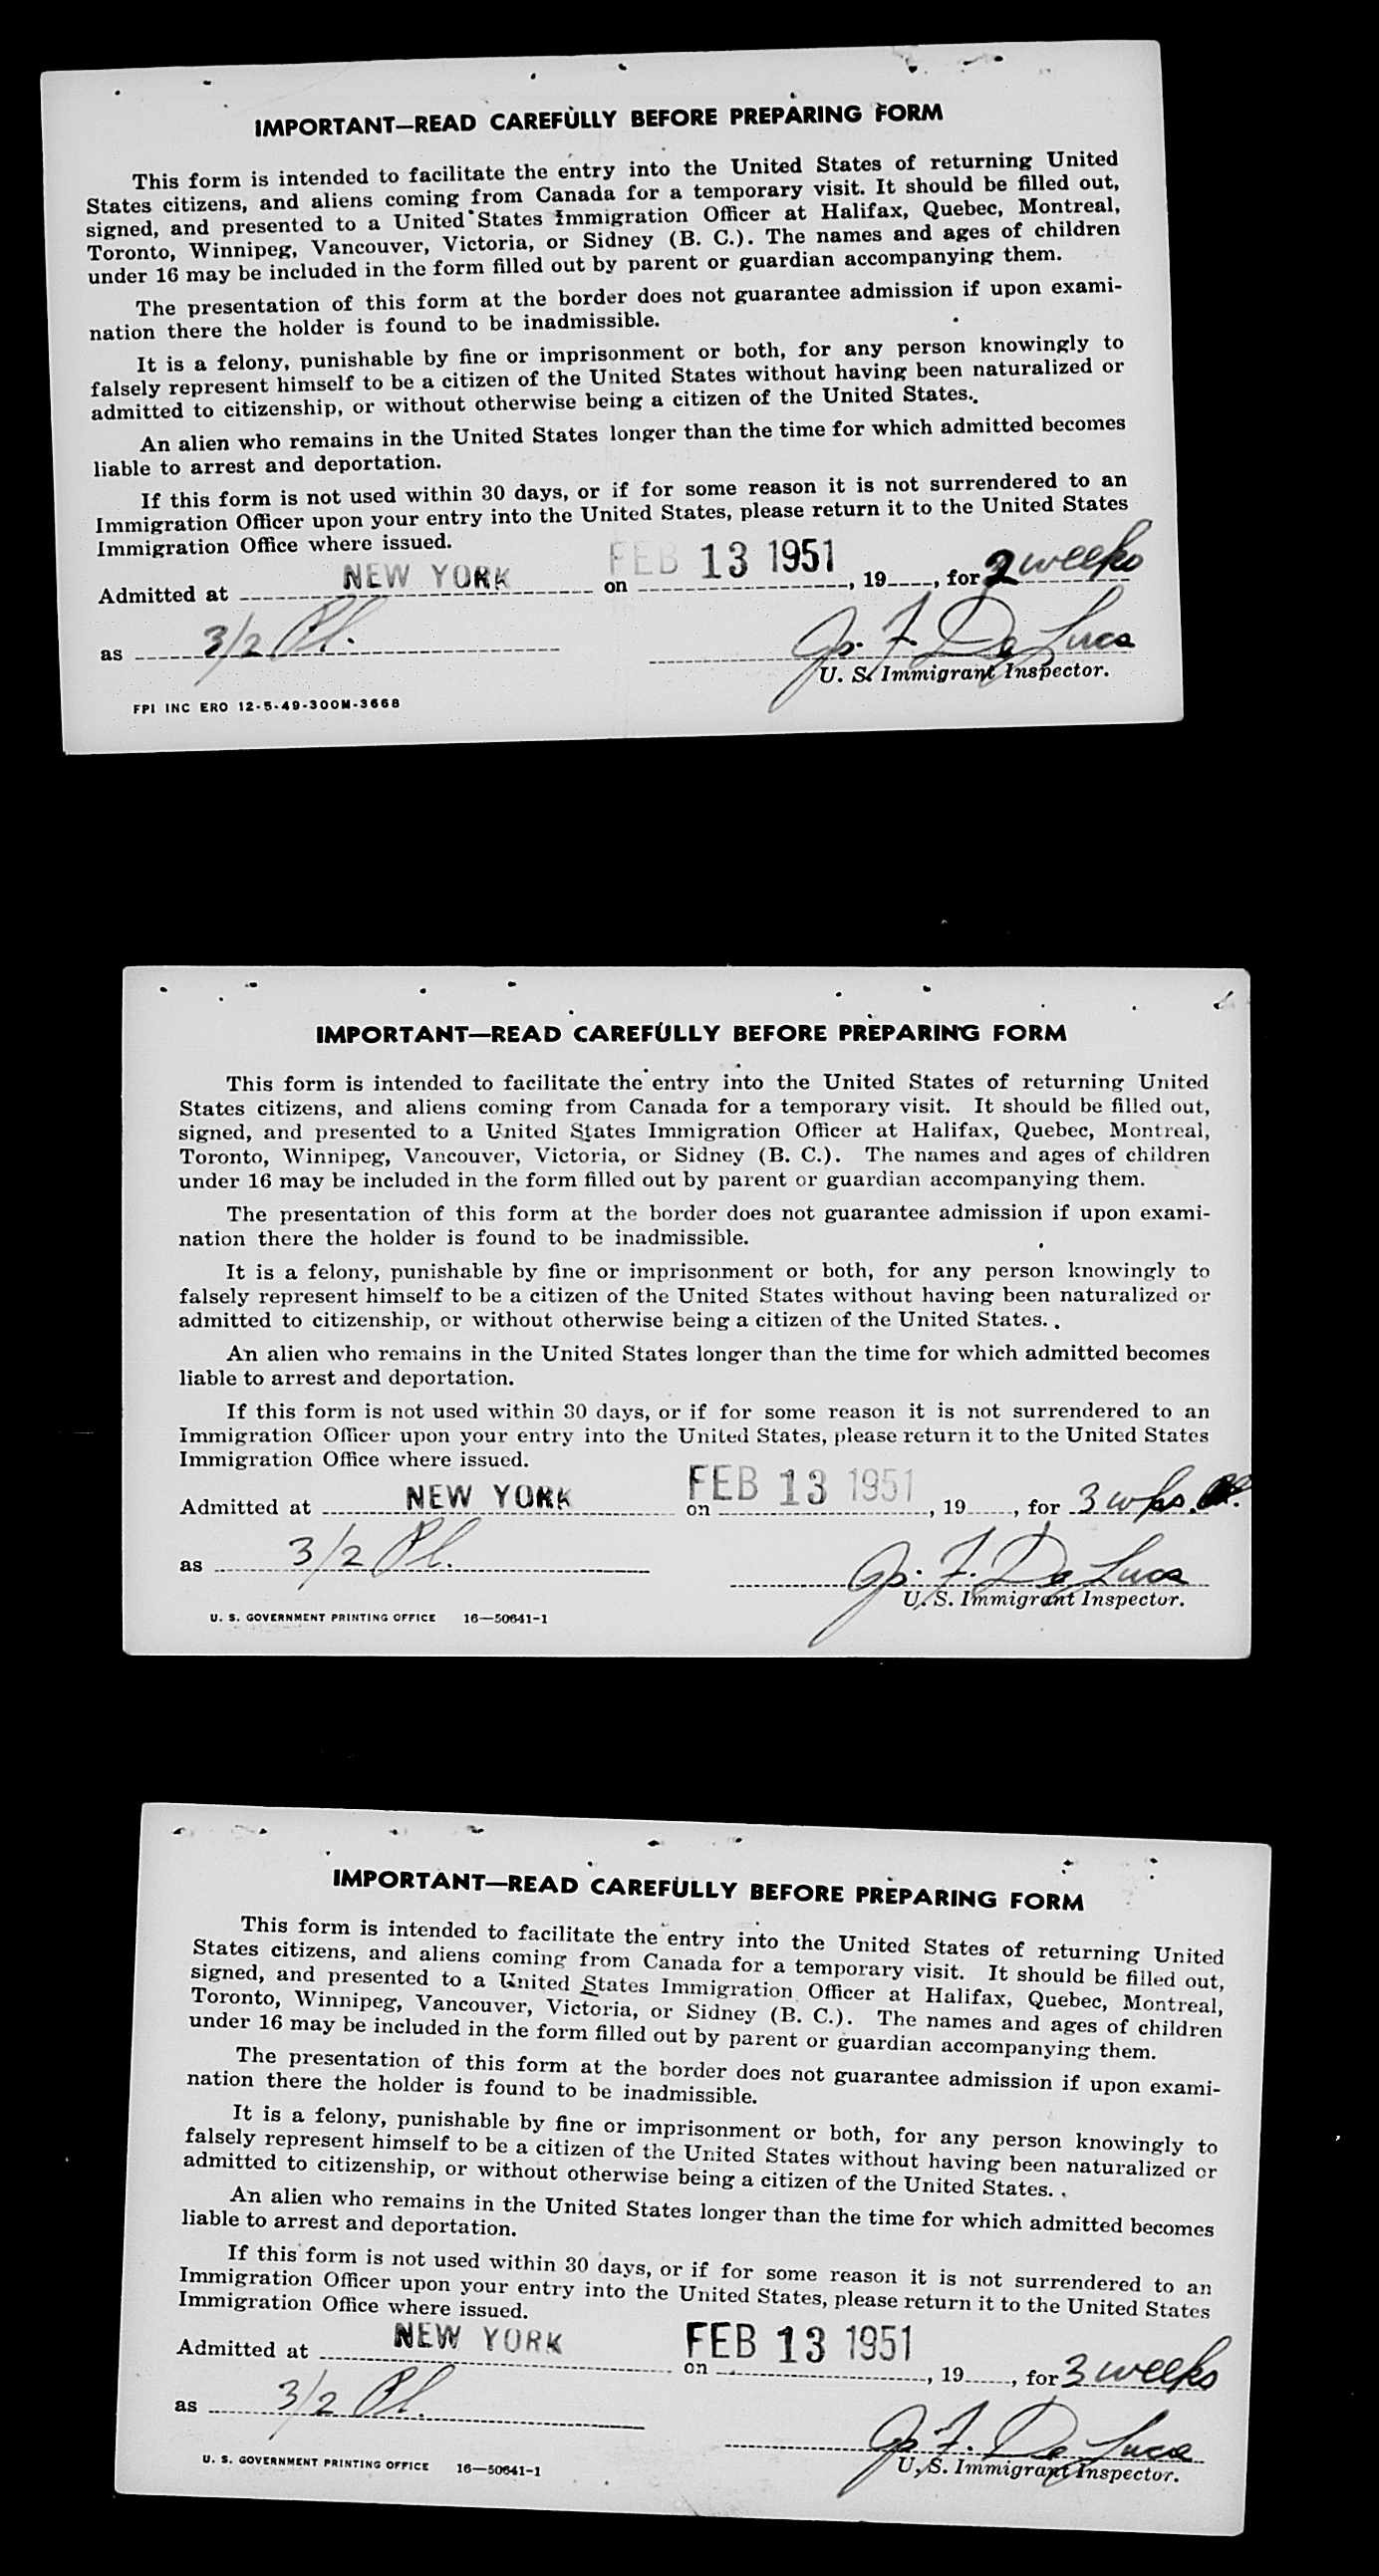 IMPORTANT—READ CAREFULLY BEFORE PREPARING FORM
This form is intended to facilitate the entry into the United States of returning United
States citizens, and aliens coming from Canada for a temporary visit. It should be filled out,
signed, and presented to a United States Immigration Officer at Halifax, Quebec, Montreal,
Toronto, Winnipeg, Vancouver, Victoria, or Sidney (B. C.). The names and ages of children
under 16 may be included in the form filled out by parent or guardian accompanying them.
The presentation of this form at the border does not guarantee admission if upon exami-
nation there the holder is found to be inadmissible.
It is a felony, punishable by fine or imprisonment or both, for any person knowingly to
falsely represent himself to be a citizen of the United States without having been naturalized or
admitted to citizenship, or without otherwise being a citizen of the United States.
An alien who remains in the United States longer than the time for which admitted becomes
liable to arrest and deportation.
If this form is not used within 30 days, or if for some reason it is not surrendered to an
Immigration Officer upon your entry into the United States, please return it to the United States
Immigration Office where issued.
Admitted at NEW YORK on FEB 13 1951, 19, for weeks
as 3/2 Pl. Jos. F. De Luca
U. S. Immigrant Inspector.
FPI INC ERO 12-5-49-300M-3668
IMPORTANT—READ CAREFULLY BEFORE PREPARING FORM
This form is intended to facilitate the entry into the United States of returning United
States citizens, and aliens coming from Canada for a temporary visit. It should be filled out,
signed, and presented to a United States Immigration Officer at Halifax, Quebec, Montreal,
Toronto, Winnipeg, Vancouver, Victoria, or Sidney (B. C.). The names and ages of children
under 16 may be included in the form filled out by parent or guardian accompanying them.
The presentation of this form at the border does not guarantee admission if upon exami-
nation there the holder is found to be inadmissible.
It is a felony, punishable by fine or imprisonment or both, for any person knowingly to
falsely represent himself to be a citizen of the United States without having been naturalized or
admitted to citizenship, or without otherwise being a citizen of the United States.
An alien who remains in the United States longer than the time for which admitted becomes
liable to arrest and deportation.
If this form is not used within 30 days, or if for some reason it is not surrendered to an
Immigration Officer upon your entry into the United States, please return it to the United States
Immigration Office where issued.
Admitted at NEW YORK on FEB 13 1951, 19, for 3 wks.
as 3/2 Pl. Jos. F. De Luca
U. S. Immigrant Inspector.
U. S. GOVERNMENT PRINTING OFFICE 16—50641-1
IMPORTANT—READ CAREFULLY BEFORE PREPARING FORM
This form is intended to facilitate the entry into the United States of returning United
States citizens, and aliens coming from Canada for a temporary visit. It should be filled out,
signed, and presented to a United States Immigration Officer at Halifax, Quebec, Montreal,
Toronto, Winnipeg, Vancouver, Victoria, or Sidney (B. C.). The names and ages of children
under 16 may be included in the form filled out by parent or guardian accompanying them.
The presentation of this form at the border does not guarantee admission if upon exami-
nation there the holder is found to be inadmissible.
It is a felony, punishable by fine or imprisonment or both, for any person knowingly to
falsely represent himself to be a citizen of the United States without having been naturalized or
admitted to citizenship, or without otherwise being a citizen of the United States.
An alien who remains in the United States longer than the time for which admitted becomes
liable to arrest and deportation.
If this form is not used within 30 days, or if for some reason it is not surrendered to an
Immigration Officer upon your entry into the United States, please return it to the United States
Immigration Office where issued.
Admitted at NEW YORK on FEB 13 1951, 19, for 3 weeks
as 3/2 Pl. Jos. F. De Luca
U. S. Immigrant Inspector.
U. S. GOVERNMENT PRINTING OFFICE 16—50641-1